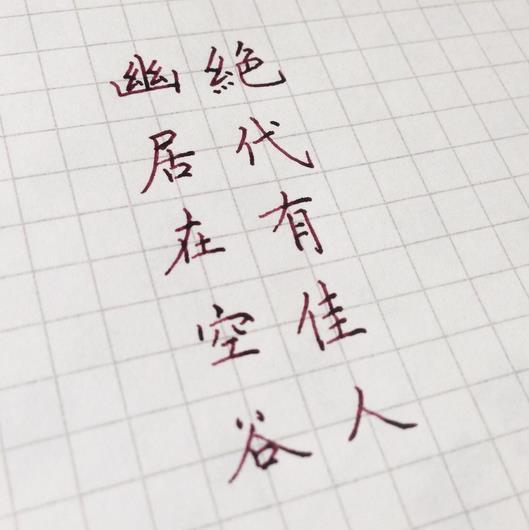 絕代有佳人
幽居在空谷